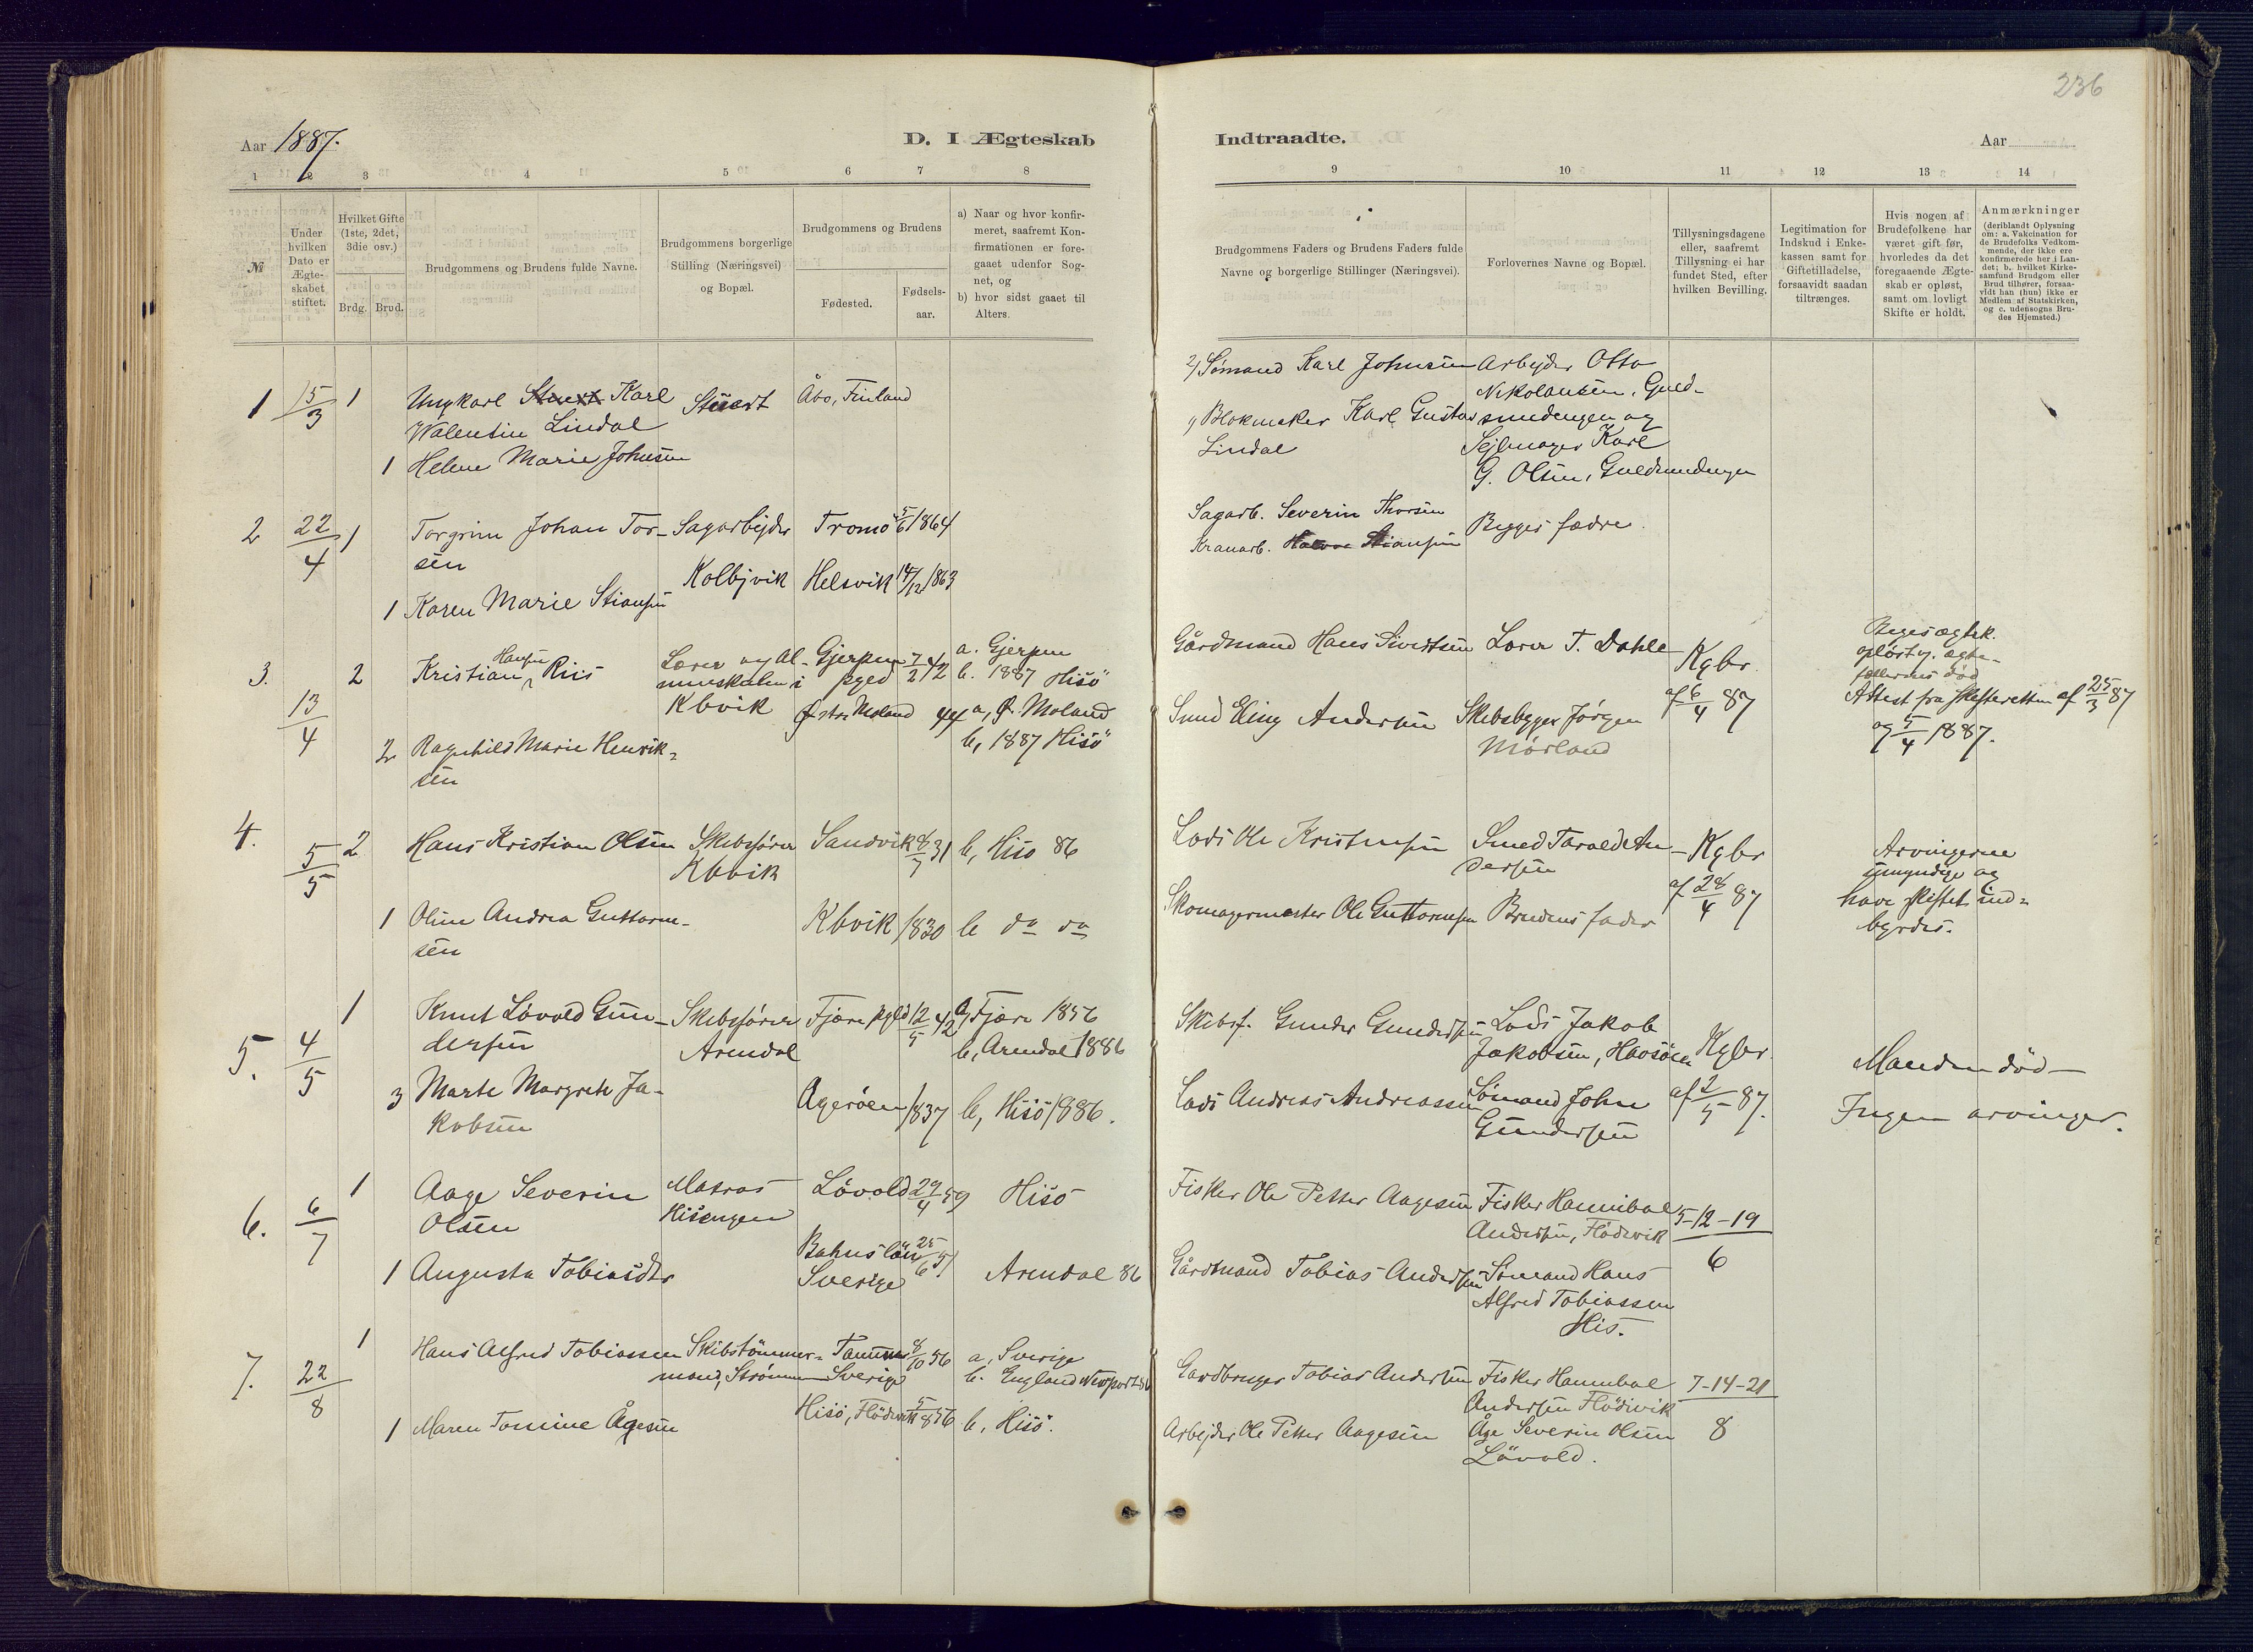 236
Aar 1887.
D. I Ægteskab
Indtraadte.
Aar
1 2 3 4 5 6 7 8 9 10 11 12 13 14
№
Under
hvilken
Dato er
Ægte-
skabet
stiftet.
Hvilket Gifte
(1ste, 2det,
3die osv.)
Brdg.
Brud.
Brudgommens og Brudens fulde Navne.
Brudgommens borgerlige
Stilling (Næringsvei)
og Bopæl.
Brudgommens og Brudens
Fødested.
Fødsels-
aar.
a) Naar og hvor konfir-
meret, saafremt Kon-
firmationen er fore-
gaaet udenfor Sog-
net, og
b) hvor sidst gaaet til
Alters.
Brudgommens Faders og Brudens Faders fulde
Navne og borgerlige Stillinger (Næringsvei).
Forlovernes Navne og Bopæl.
Tillysningsdagene
eller, saafremt
Tillysning ei har
fundet Sted, efter
hvilken Bevilling.
Legitimation for
Indskud i Enke-
kassen samt for
Giftetilladelse,
forsaavidt saadan
tiltrænges.
Hvis nogen af
Brudefolkene har
været gift før,
hvorledes da det
foregaaende Ægte-
skab er opløst,
samt om lovligt
Skifte er holdt.
Anmærkninger
(deriblandt Oplysning
om: a. Vakcination for
de Brudefolks Vedkom-
mende, der ikke ere
konfirmerede her i Lan-
det; b. hvilket Kirke-
samfund Brudgom eller
Brud tilhører, forsaa-
vidt han (hun) ikke er
Medlem af Statskirken,
og c. udensogns Bru-
des Hjemsted.)
1 15/3 1 Ungkarl Stuert Karl
Walentin Lindal
1 Helene Marie Johnsen
Stuert
Åbo, Finland
2) Sømand Karl Johnsen
1) Blokmaker Karl Gustav
Lindal
Arbejder Otto
Nikolausen, Guld-
smedengen og
Sejlmager Karl
G. Olsen, Guldsmedengen
2 22/4 1 Torgrim Johan Tor-
sen
1 Karen Marie Stiansen
Sagarbejder
Kolbjvik
Tromø 5/6 1864
Helsvik 14/12 1863
Sagarb. Severin Thorsen
Kranarb. Stiansen
Begges fædre.
3. 13/4 2 Kristian Hansen Riis
2 Ragnhild Marie Henrik-
sen
Lærer ved Al-
mueskolen i
Kbvik
Gjerpen 7/2 42
pgld
Østre Moland 44
a. Gjerpen
b. 1887 Hisö
a, Ø. Moland
b, 1887 Hisö
Gårdmand Hans Sivertsen
Smed Eling Andersen
Lærer T. Dahle
Skibsbygger Jörgen
Mörland
Kgbr.
af 6/4 87
Beges ægtsk.
opløst v. ægte-
fællernes död
Attest fra skifteretten af 25/3 87
og 5/4 1887.
4. 5/5 2 Hans Kristian Olsen
1 Oline Andrea Guttorm-
sen
Skibsfører
Kbvik
Sandvik 8/7 31
Kbvik 1830
b, Hisö 86
b do do
Lods Ole Kristensen
Skomagermester Ole Guttormsen
Smed Tarald An-
dersen
Brudens fader
Kgbr
af 28/4 87
Arvingerne
umyndige og
have skiftet ind-
byrdes.
5. 4/5 1 Knut Lövold Gun-
dersen
3 Marte Margrete Ja-
kobsen
Skibsfører
Arendal
Fjære pgld 12/5 42
Agerøen 1837
a, Fjære 1856
b, Arendal 1886
b, Hisö 1886.
Skibsf. Gunder Gundersen
Lods Andreas Andreassen
Lods Jakob
Jakobsen, Havsöen
Sömand John
Gundersen
Kgbr.
af 2/5 87.
Manden död —
Ingen arvinger.
6. 6/7 1 Aage Severin
Olsen
1 Augusta Tobiasdtr
Matros
Hisengen
Lövold 29/4 59
Bahuslän 25/6 51
Sverige
Hisö
Arendal 86
Fisker Ole Petter Aagesen
Gårdmand Tobias Andersen
Fisker Hannibal
Andersen, Flödevik
Sömand Hans
Alfred Tobiassen
His.
5-12-19
6
7. 22/8 1 Hans Alfred Tobiassen
1 Maren Tomine Ågesen
Skibstömmer-
mand, Strömmen
Tanum 8/10 56
Sverige
Hisö, Flödevik 5/8 56
a, Sverige
b. England Newport 86
b, Hisö.
Gaardbruger Tobias Andersen
Arbejder Ole Petter Aagesen
Fisker Hannibal
Andersen Flödevik
Åge Severin Olsen
Lövold.
7-14-21
8